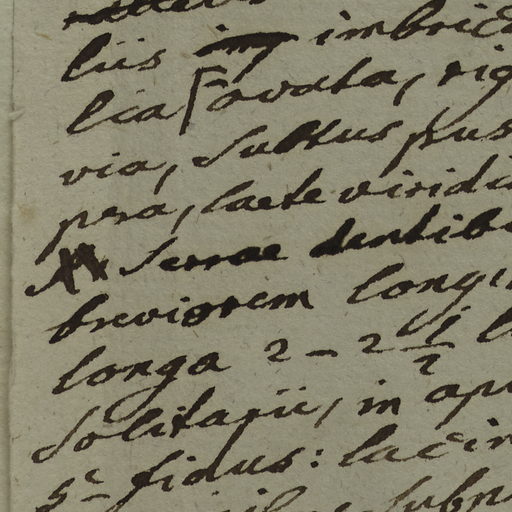 liis imbric
lia [ovata, rig
via, subtus pus
pera, laete viridi
Serrae dentib
breviorem long
longa 2 - 2 1/2 l
Solitarii, in ap
5c- fidus: lacin
subp